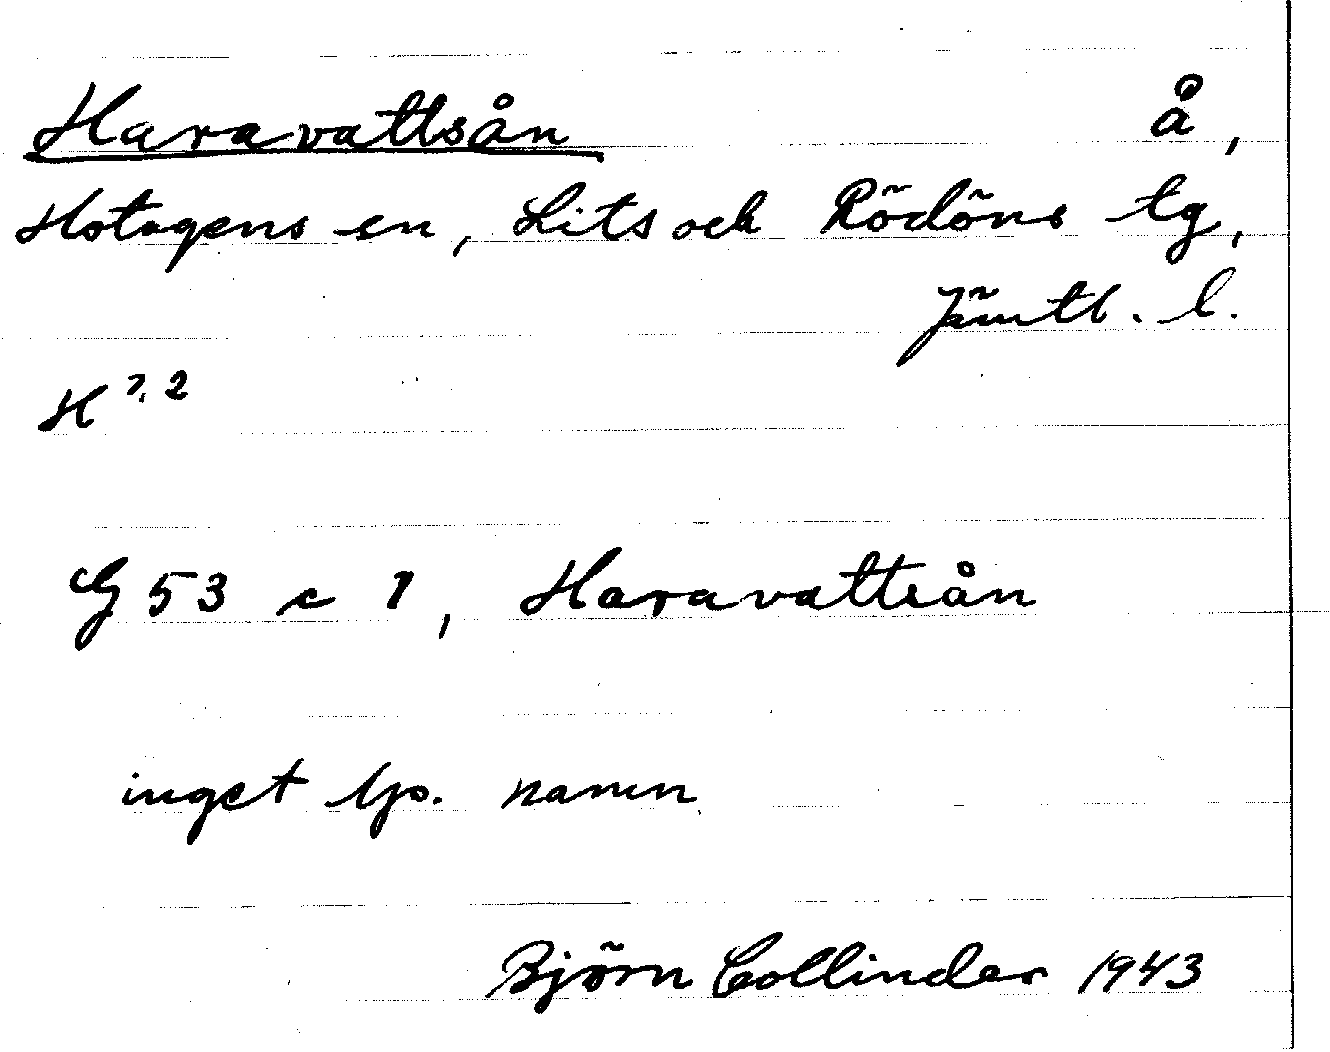 Haravattsån å,
Hotagens sn, Lits och Rödöns tg,
Jämtl. l.
H 7, 2
G 53 c 1, Haravattsån
inget lp. namn
Björn Collinder 1943